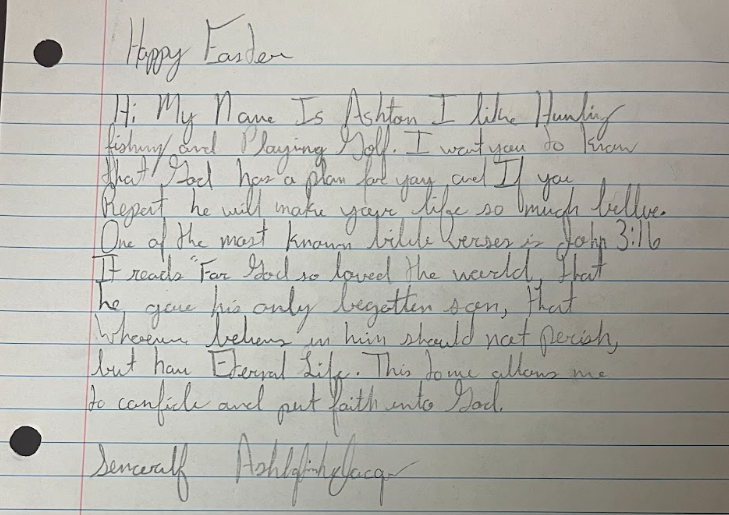 Happy Easter
Hi My Name Is Ashton I like Hunting
fishing and Playing Golf. I want you to know
that God has a plan for you and If you
Repent he will make your life so much
One of the most known bible verses is John 3:16
It reads "For God so loved the world, that
he gave his only begotten son, that
whoever in him should not perish,
but have Eternal Life. This to me allows me
to confide and put faith into God.